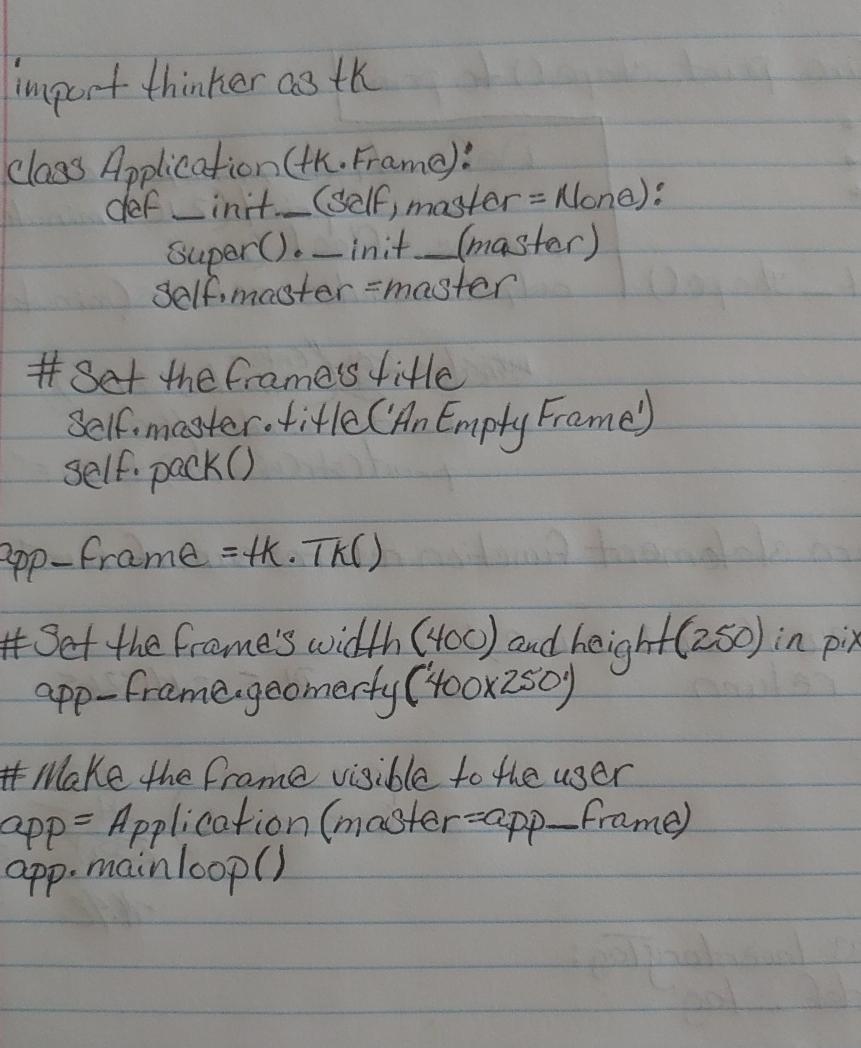 import thinker as tk
class Application(tk.Frame):
def __init__(self, master=None):
super().__init__(master)
self.master=master
# Set the frame's title
self.master.title('An Empty Frame')
self.pack()
app_frame = tk.Tk()
# Set the frame's width (400) and height (250) in pix
app_frame.geomerty('400x250')
# Make the frame visible to the user
app = Application(master=app_frame)
app.mainloop()